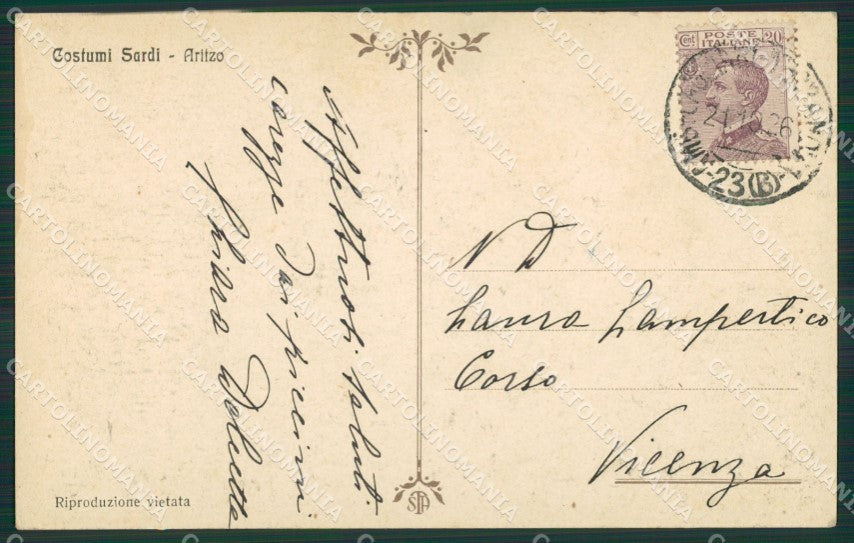 Costumi Sardi - Aritzo
Cent POSTE ITALIANE 20
21.10.26
23(B)
Affettuosi saluti
carezze dai piccini
N D
Laura Lampertico
Corso
Vicenza
Riproduzione vietata
STA
CARTOLINOMANIA